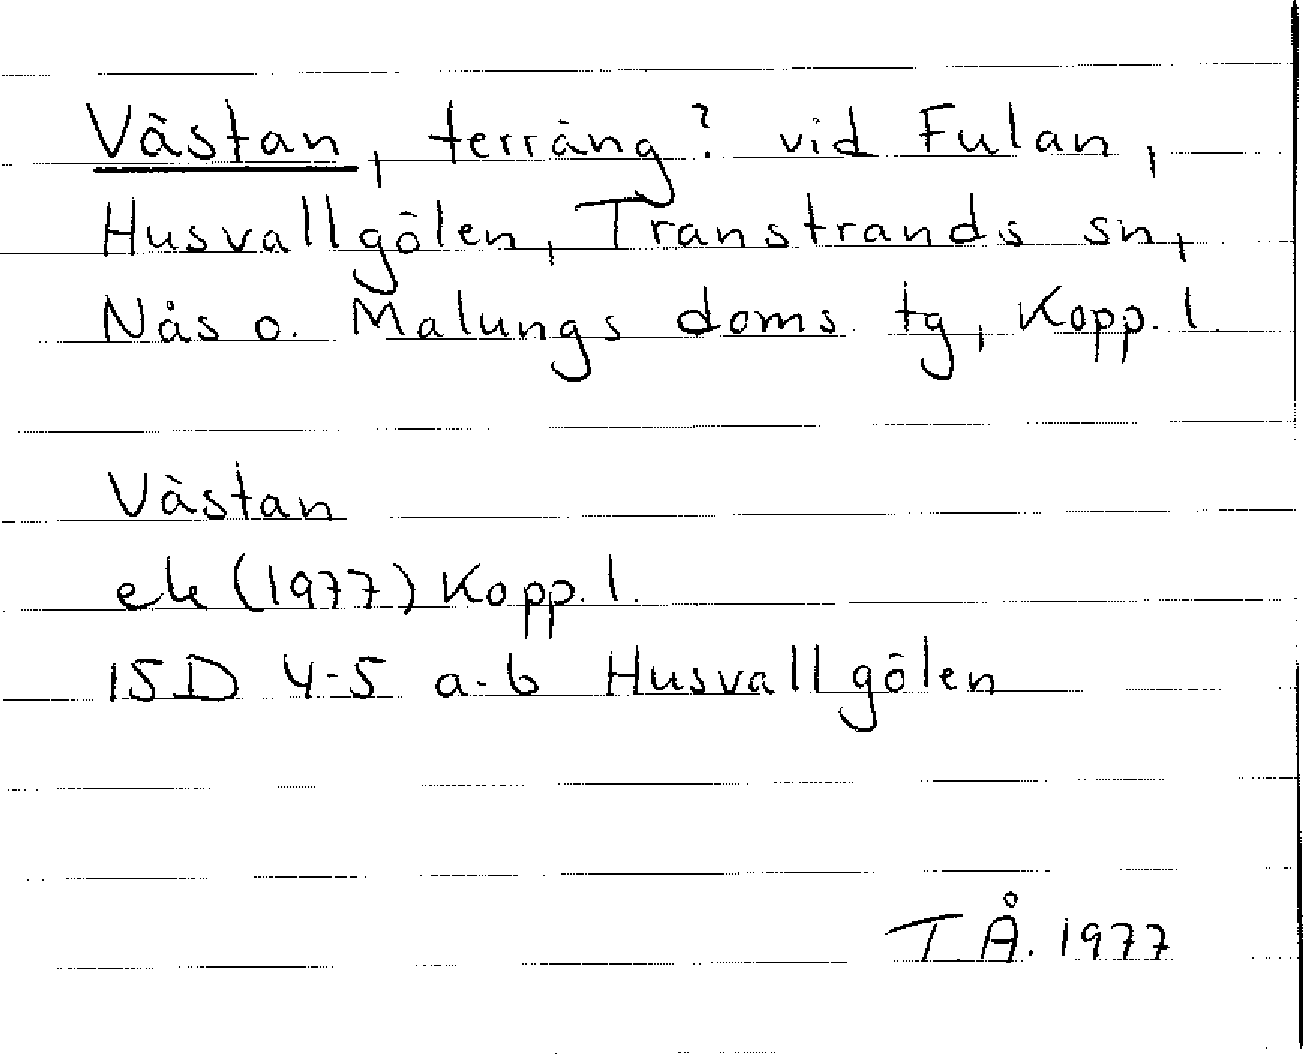 Västan, terräng? vid Fulan,
Husvallgölen, Transtrands sn,
Nås o. Malungs doms. tg, Kopp. l.
Västan
ek (1977) Kopp. l.
15D 4-5 a-b Husvallgölen
T Å. 1977